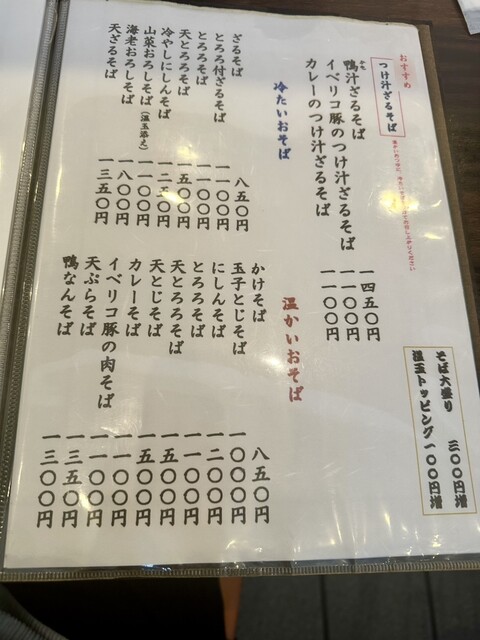 そば大盛り 三〇〇円増
温玉トッピング一〇〇円増
おすすめ
つけ汁ざるそば
鴨汁ざるそば 一四五〇円
イベリコ豚のつけ汁ざるそば 一一〇〇円
カレーのつけ汁ざるそば 一一〇〇円
冷たいおそば
ざるそば 八五〇円
とろろ付ざるそば 一〇〇〇円
とろろそば 一一〇〇円
天とろろそば 一五〇〇円
冷やしにしんそば 一二五〇円
山菜おろしそば(温玉添え) 一一〇〇円
海老おろしそば 一八〇〇円
天ざるそば 一三五〇円
温かいおそば
かけそば 八五〇円
玉子とじそば 一〇〇〇円
にしんそば 一二〇〇円
とろろそば 一一〇〇円
天とろろそば 一五〇〇円
天とじそば 一五〇〇円
カレーそば 一一〇〇円
イベリコ豚の肉そば 一一〇〇円
天ぷらそば 一三五〇円
鴨なんそば 一三〇〇円